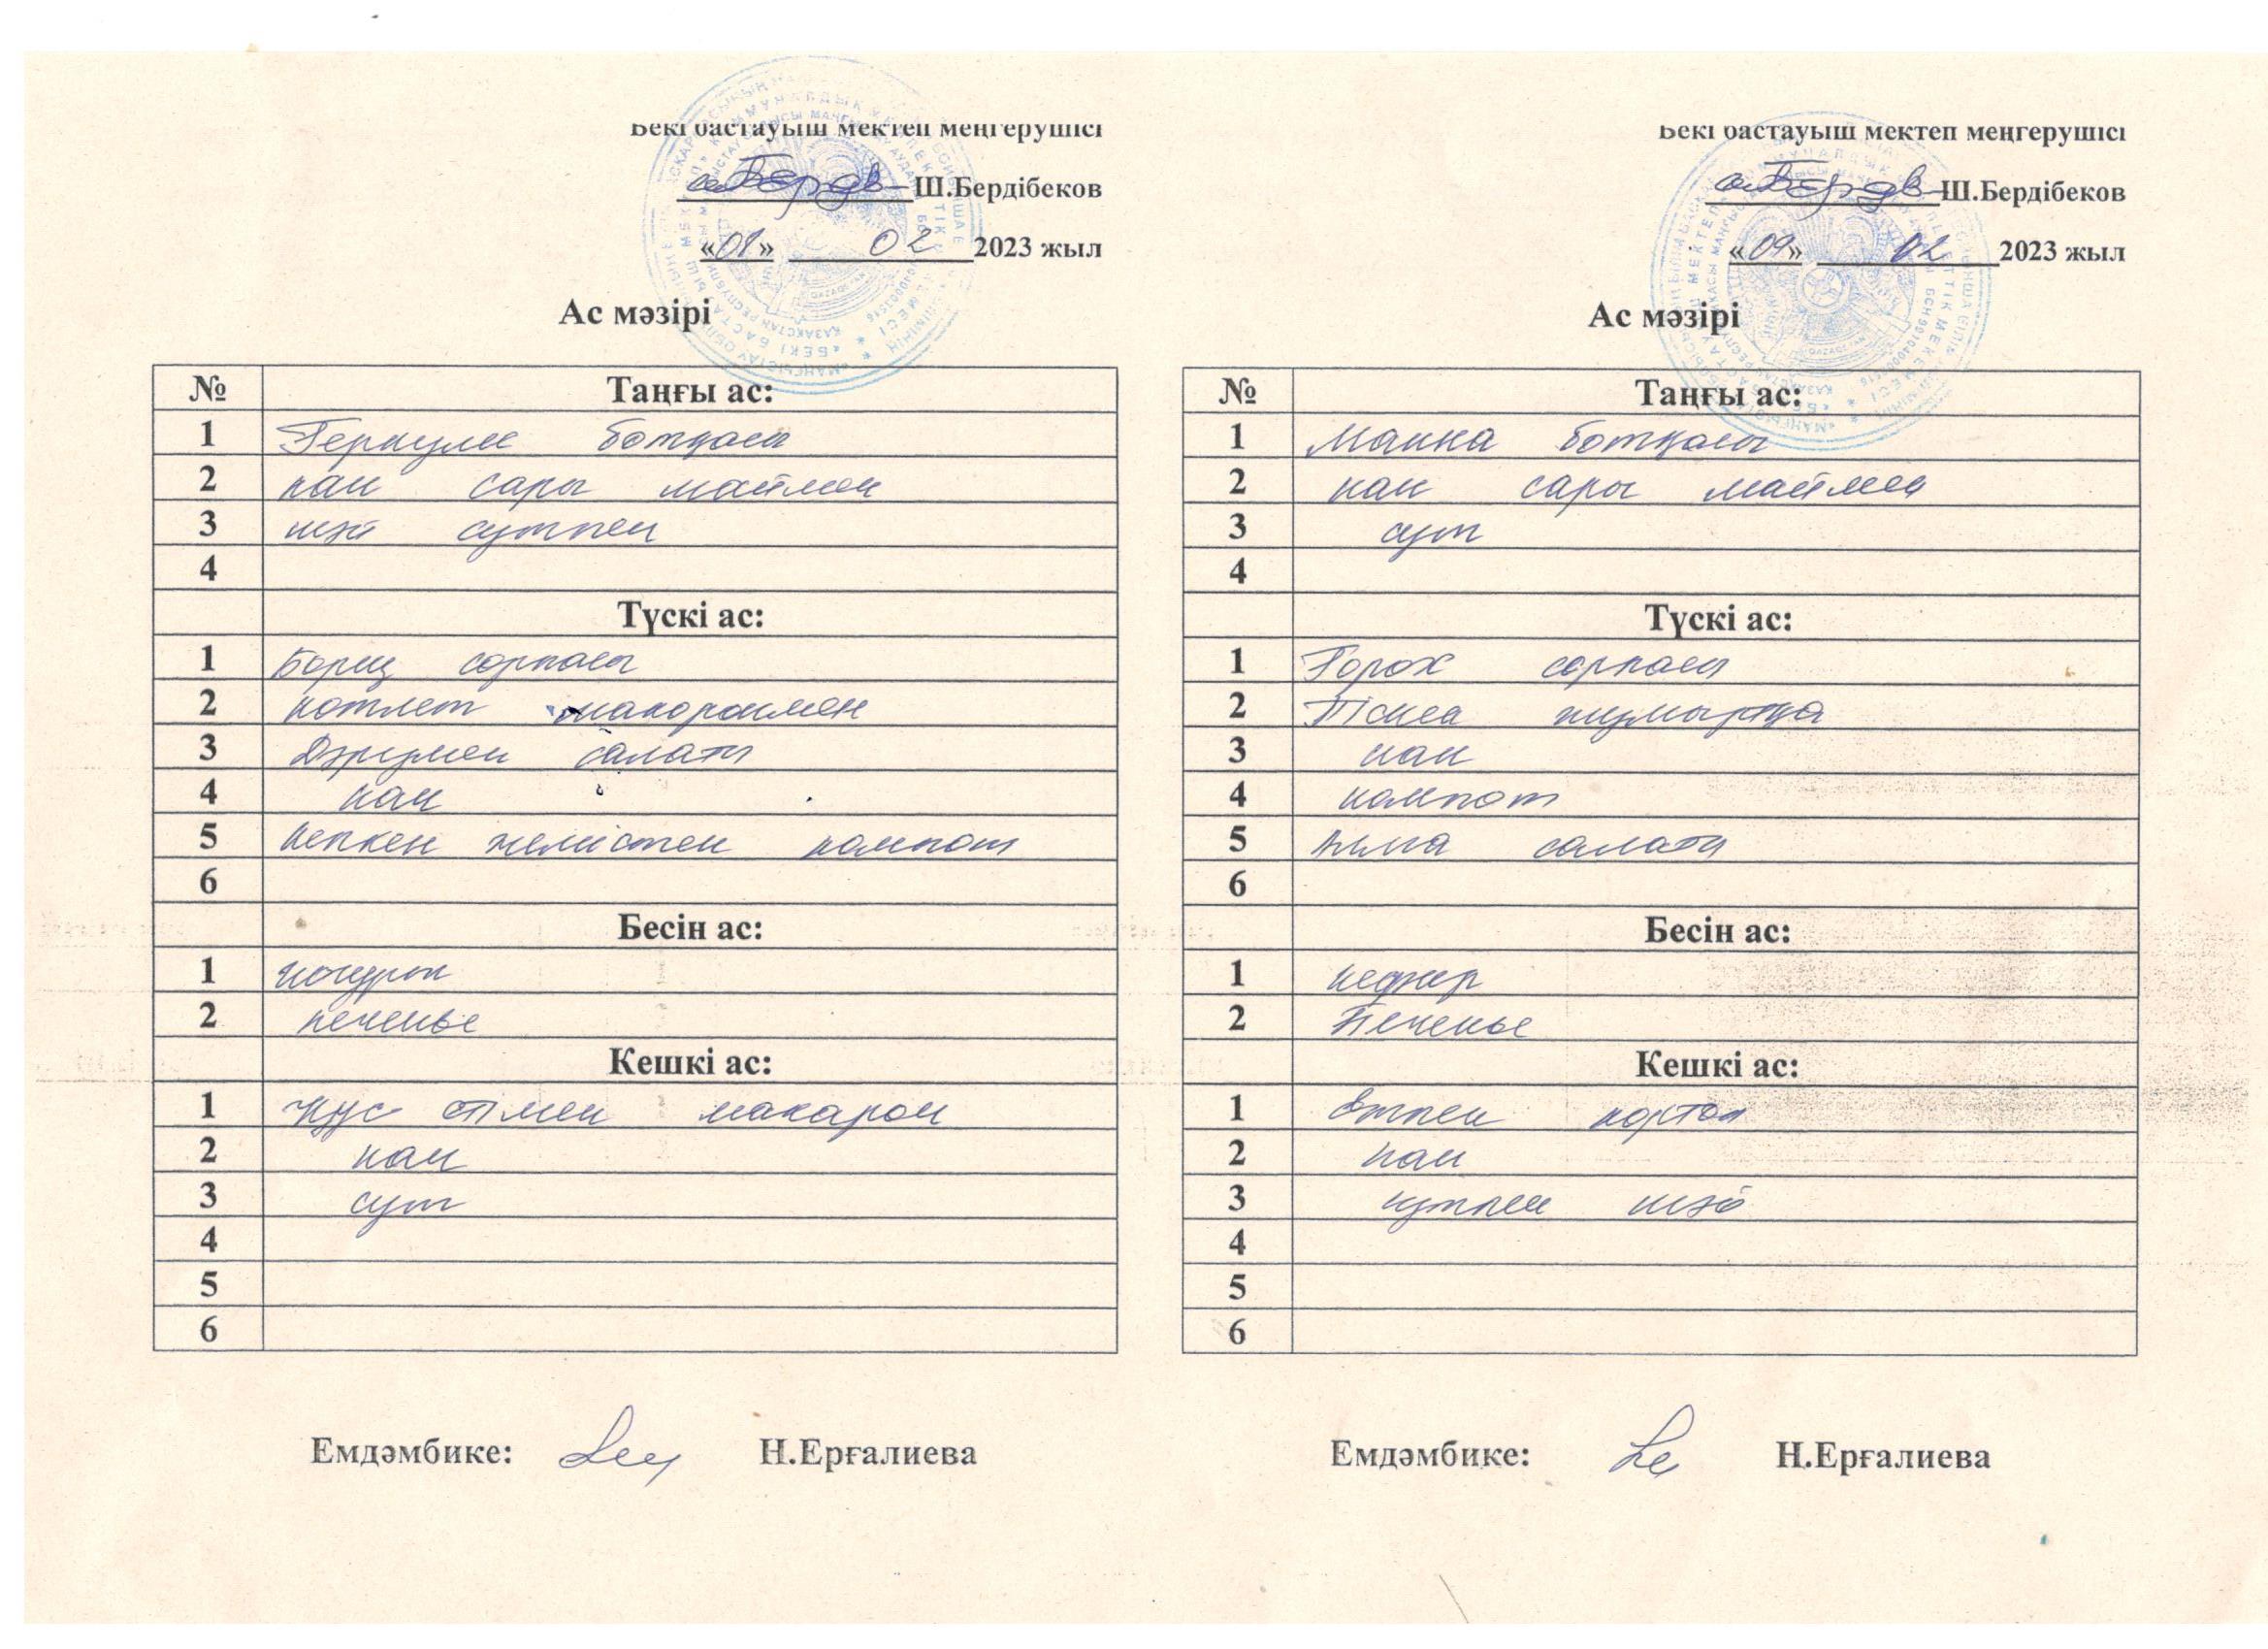 Бекі бастауыш мектеп меңгерушісі
Ш.Бердібеков
«01» 02 2023 жыл
Ас мәзірі
№ Таңғы ас:
1 Геркулес ботқасы
2 нан сары маймен
3 шәй сүтпен
4
Түскі ас:
1 Борщ сорпасы
2 котлет макоронмен
3 Дәрумен салаты
4 нан
5 Кепкен жемістен компот
6
Бесін ас:
1 йогурт
2 печенье
Кешкі ас:
1 Құс етімен макарон
2 нан
3 сүт
4
5
6
Емдәмбике: Н.Ерғалиева
Бекі бастауыш мектеп меңгерушісі
Ш.Бердібеков
«09» 02 2023 жыл
Ас мәзірі
№ Таңғы ас:
1 Манка ботқасы
2 нан сары маймен
3 сүт
4
Түскі ас:
1 Горох сорпасы
2 Піскен жұмыртқа
3 нан
4 компот
5 Алма салаты
6
Бесін ас:
1 кефир
2 Печенье
Кешкі ас:
1 Етпен картоп
2 нан
3 сүтпен шәй
4
5
6
Емдәмбике: Н.Ерғалиева